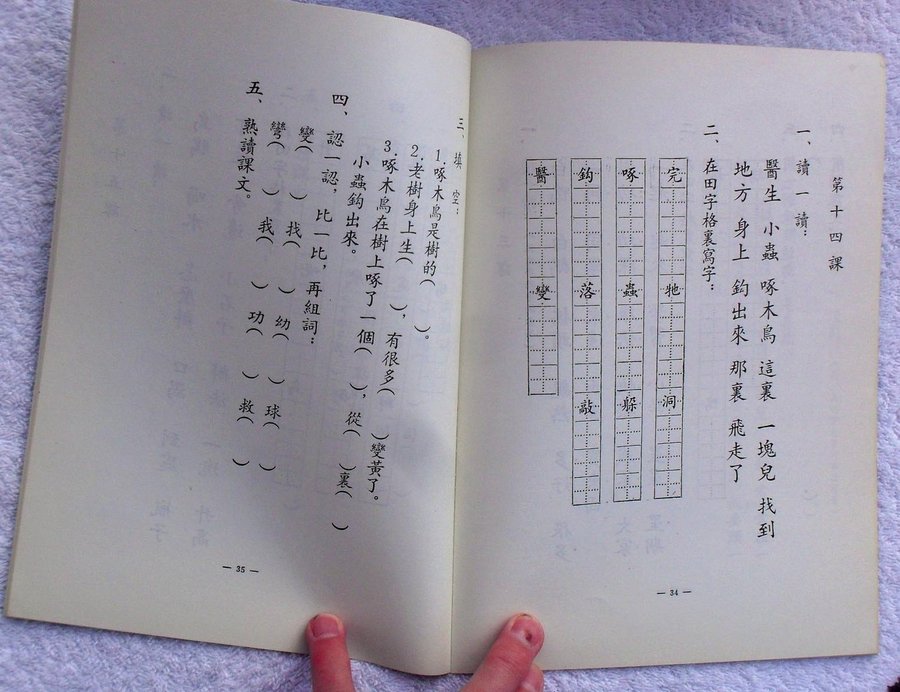 第十四課
一、讀一讀：
醫生 小蟲 啄木鳥 這裏 一塊兒 找到
地方 身上 鈎出來 那裏 飛走了
二、在田字格裏寫字：
完 牠 洞
啄 蟲 躲
鈎 落 敲
醫 變
— 34 —
三、填空：
1.啄木鳥是樹的（ ）。
2.老樹身上生（ ），有很多（ ）變黃了。
3.啄木鳥在樹上啄了一個（ ），從（ ）裏（ ）
小蟲鈎出來。
四、認一認，比一比，再組詞：
變（ ） 找（ ） 幼（ ） 球（ ）
彎（ ） 我（ ） 功（ ） 救（ ）
五、熟讀課文。
— 35 —